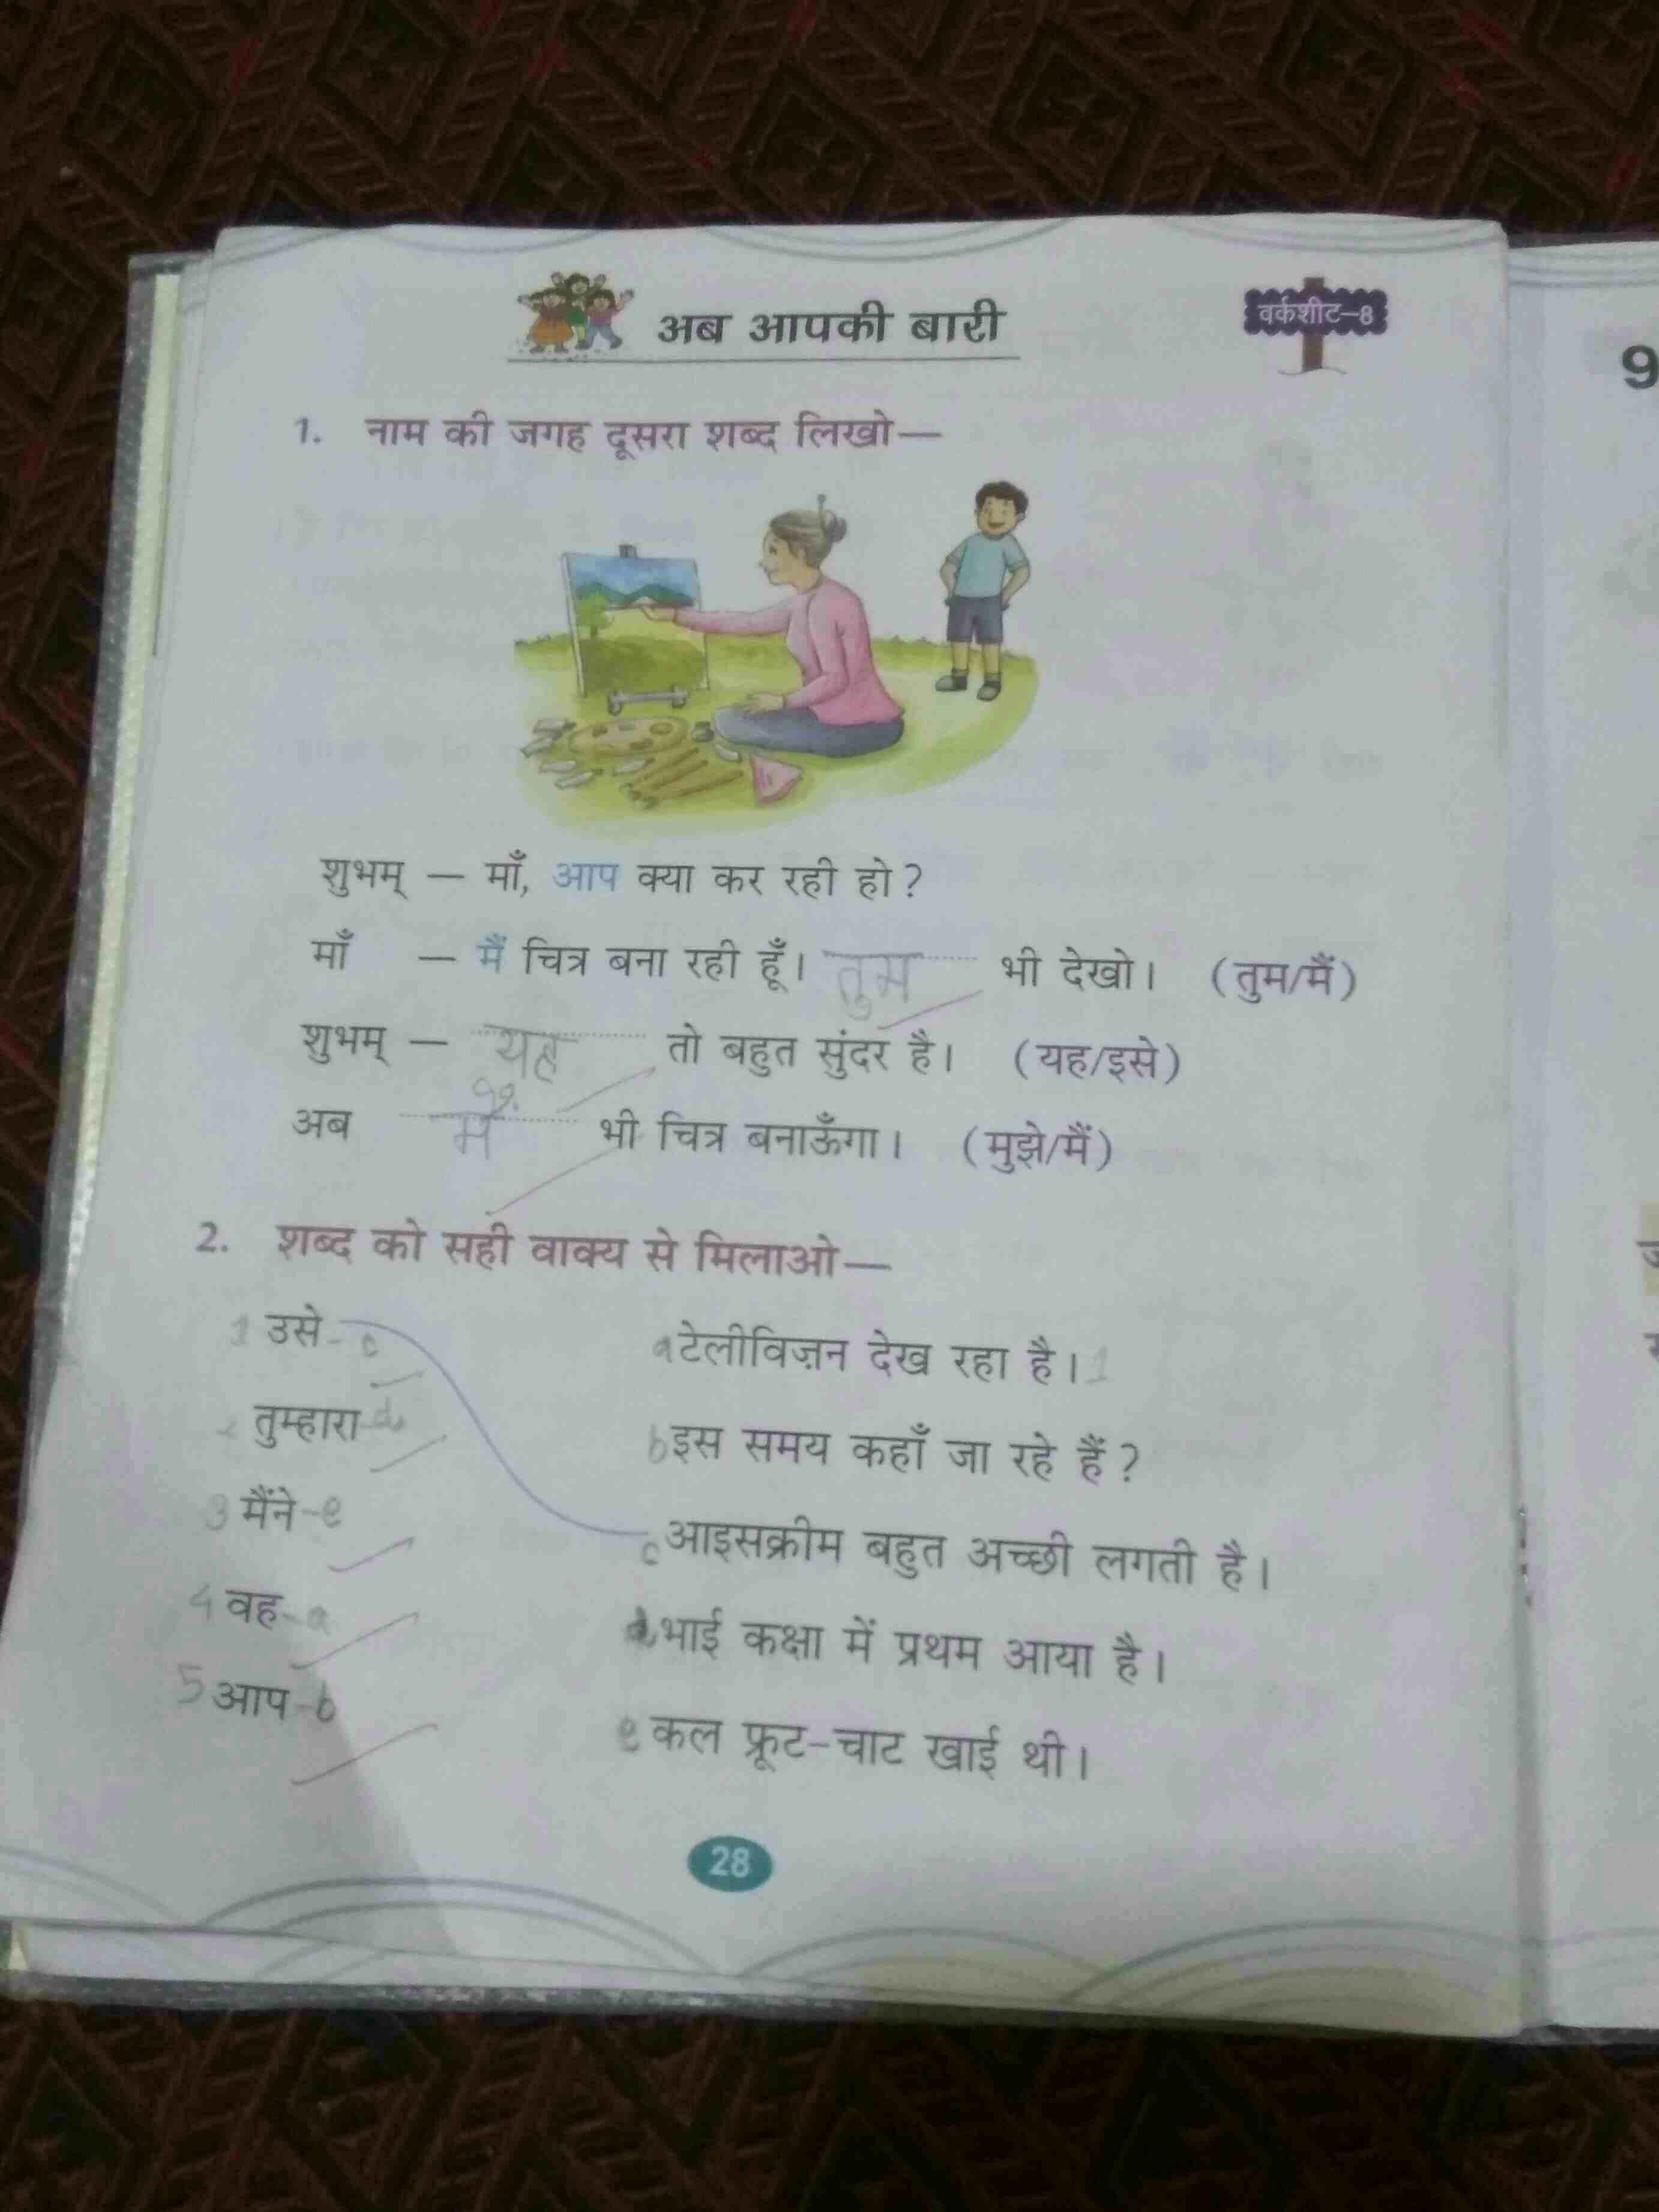 अब आपकी बारी
वर्कशीट-8
9
1. नाम की जगह दूसरा शब्द लिखो—
शुभम् — माँ, आप क्या कर रही हो?
माँ — मैं चित्र बना रही हूँ। तुम भी देखो। (तुम/मैं)
शुभम् — यह तो बहुत सुंदर है। (यह/इसे)
अब मैं भी चित्र बनाऊँगा। (मुझे/मैं)
2. शब्द को सही वाक्य से मिलाओ—
1 उसे - c a टेलीविज़न देख रहा है। 1
तुम्हारा - d b इस समय कहाँ जा रहे हैं?
3 मैंने - e c आइसक्रीम बहुत अच्छी लगती है।
4 वह - a d भाई कक्षा में प्रथम आया है।
5 आप - b e कल फ्रूट-चाट खाई थी।
28